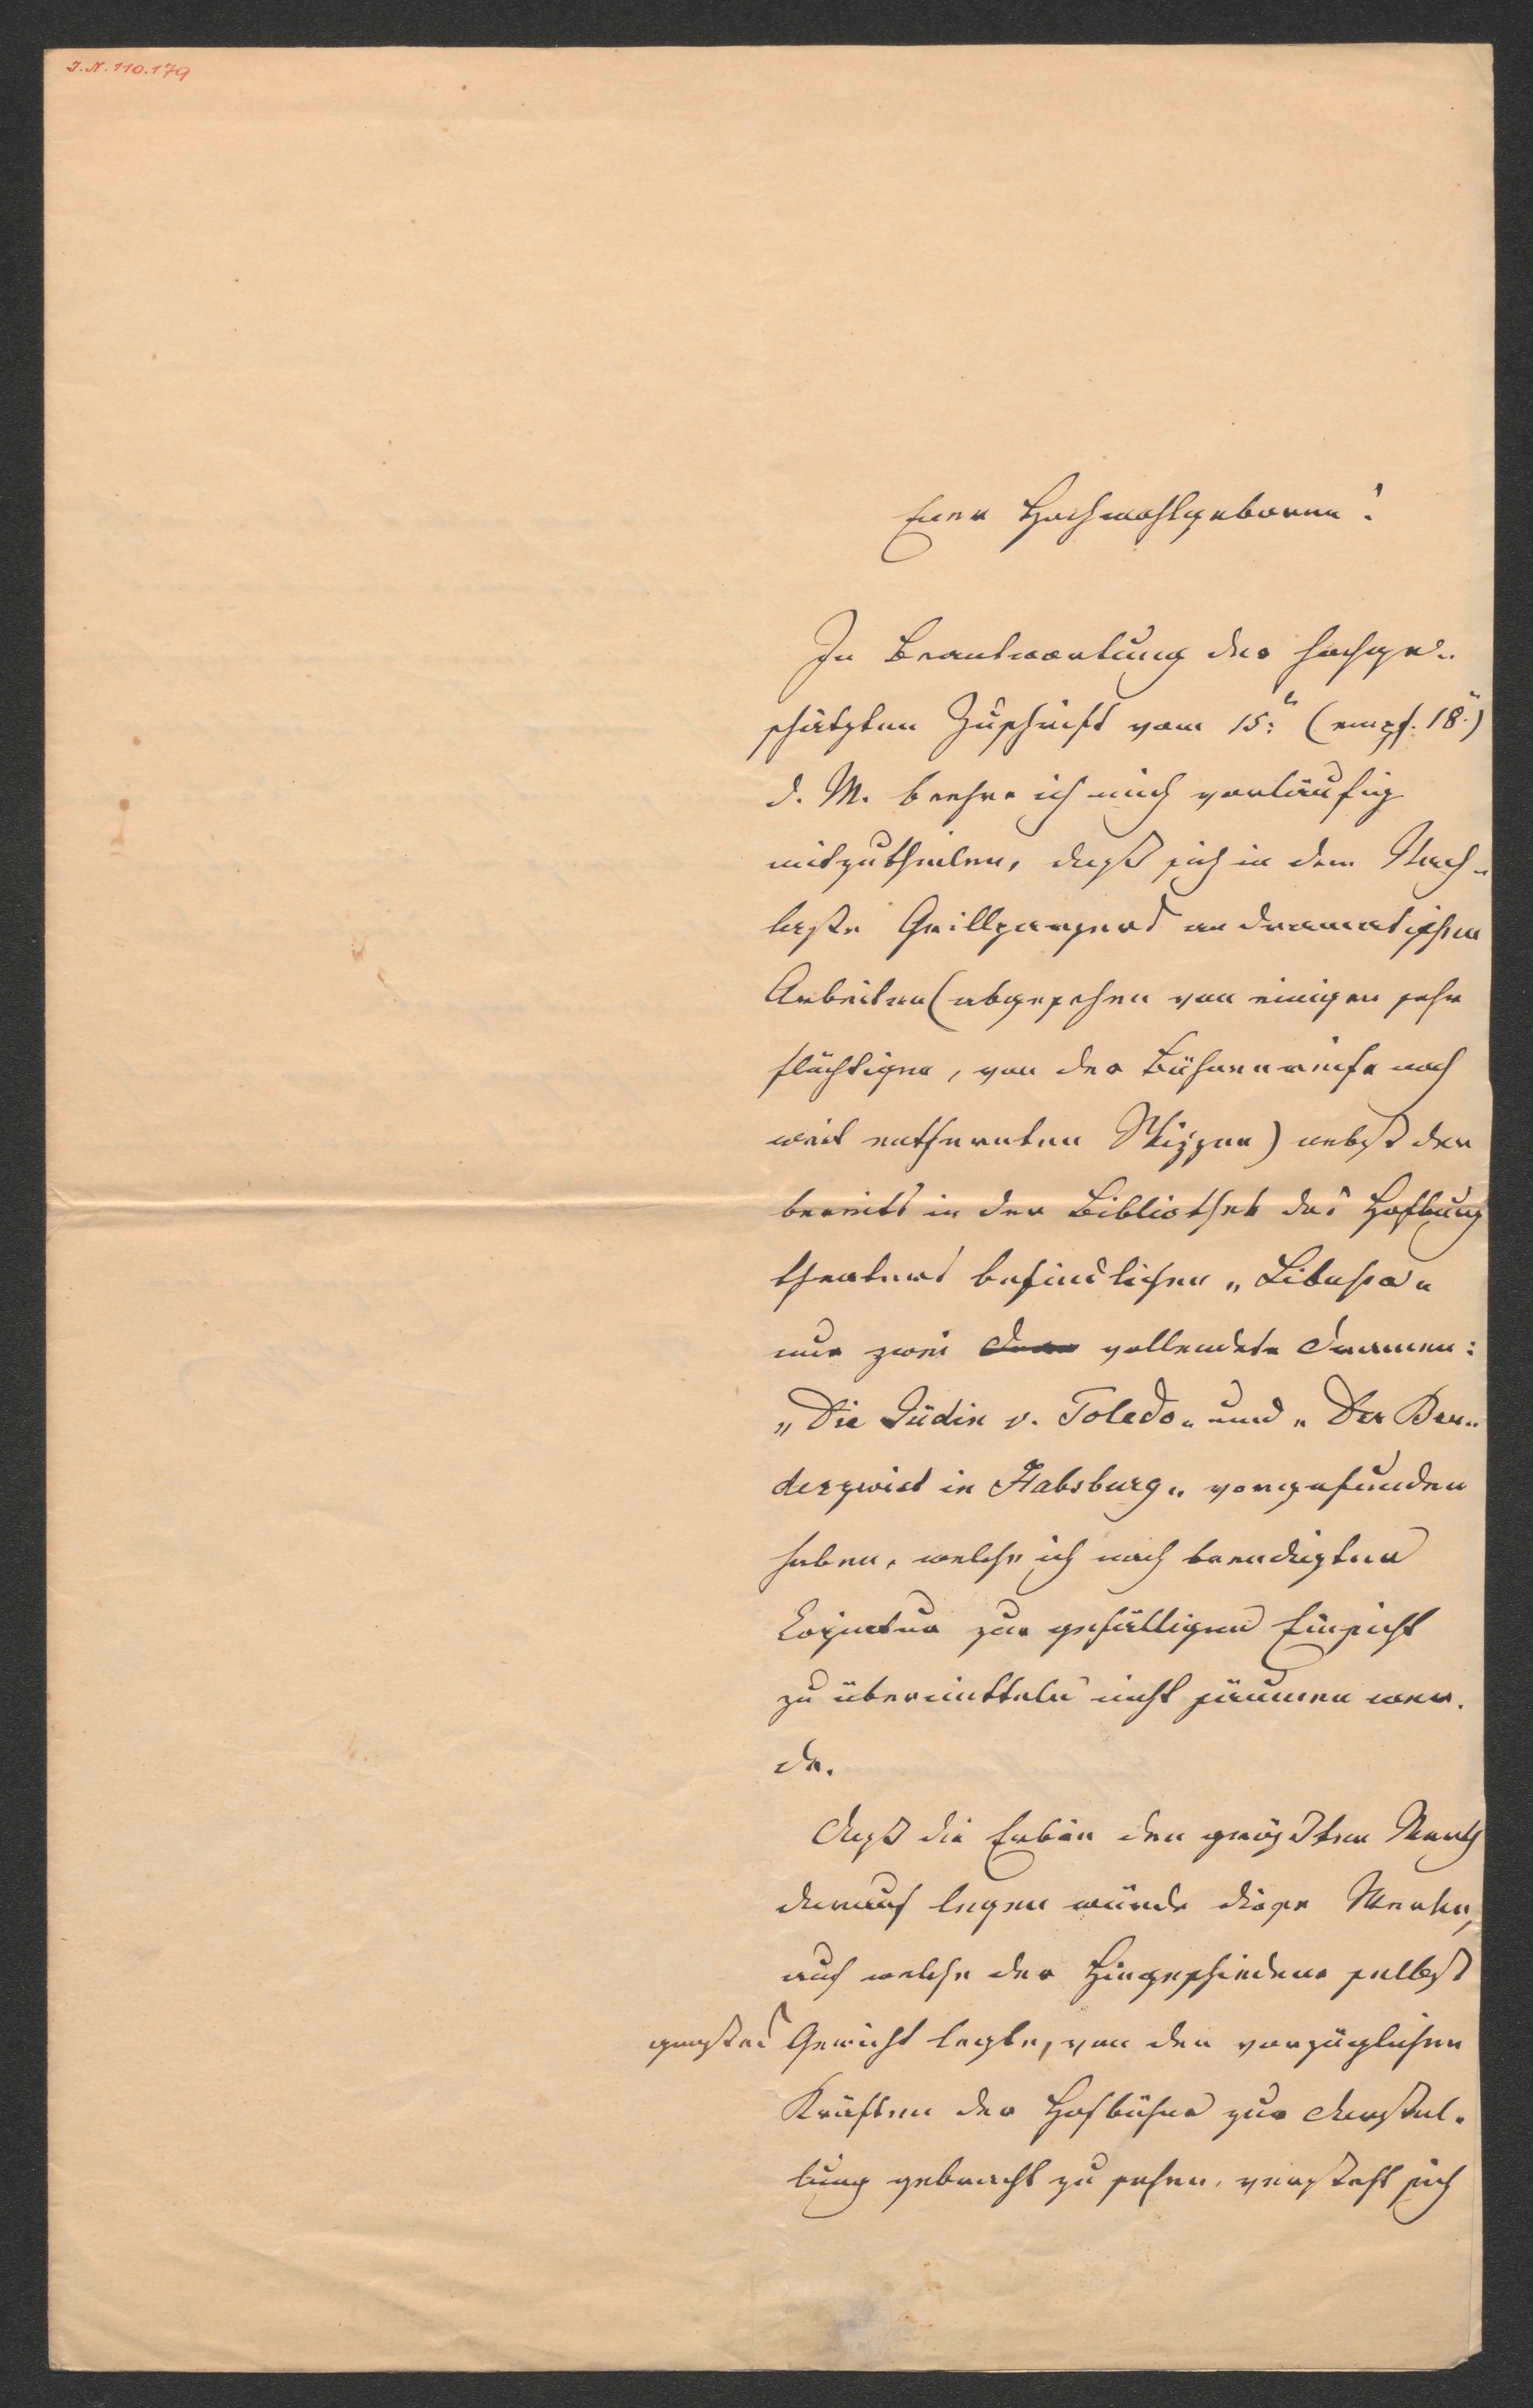 I.N. 110.179
Euer Hochwohlgeboren!
In Beantwortung der hochge-
schätzten Zuschrift vom 15: (empf. 18.)
d. M. beehre ich mich vorläufig
mitzutheilen, daß sich in dem Nach-
laße Grillparzers an dramatischen
Arbeiten (abgesehen von einigen sehr
flüchtigen, von der Bühnenreife noch
weit entfernten Skizzen) nebst der
bereits in der Bibliothek des Hofburg
theaters befindlichen „Libussa„
nur zwei vollendete Dramen:
„Die Jüdin v. Toledo„ und „Der Bru-
derzwist in Habsburg„ vorgefunden
haben, welche ich nach beendigter
Copiatur zur gefälligen Einsicht
zu übermitteln nicht säumen wer-
de.
Daß die Erbin den größten Werth
darauf legen würde diese Werke,
auf welche der Hingeschiedene selbst
großes Gewicht legte, von den vorzüglichen
Kräften der Hofbühne zur Darstel-
lung gebracht zu sehen, versteht sich